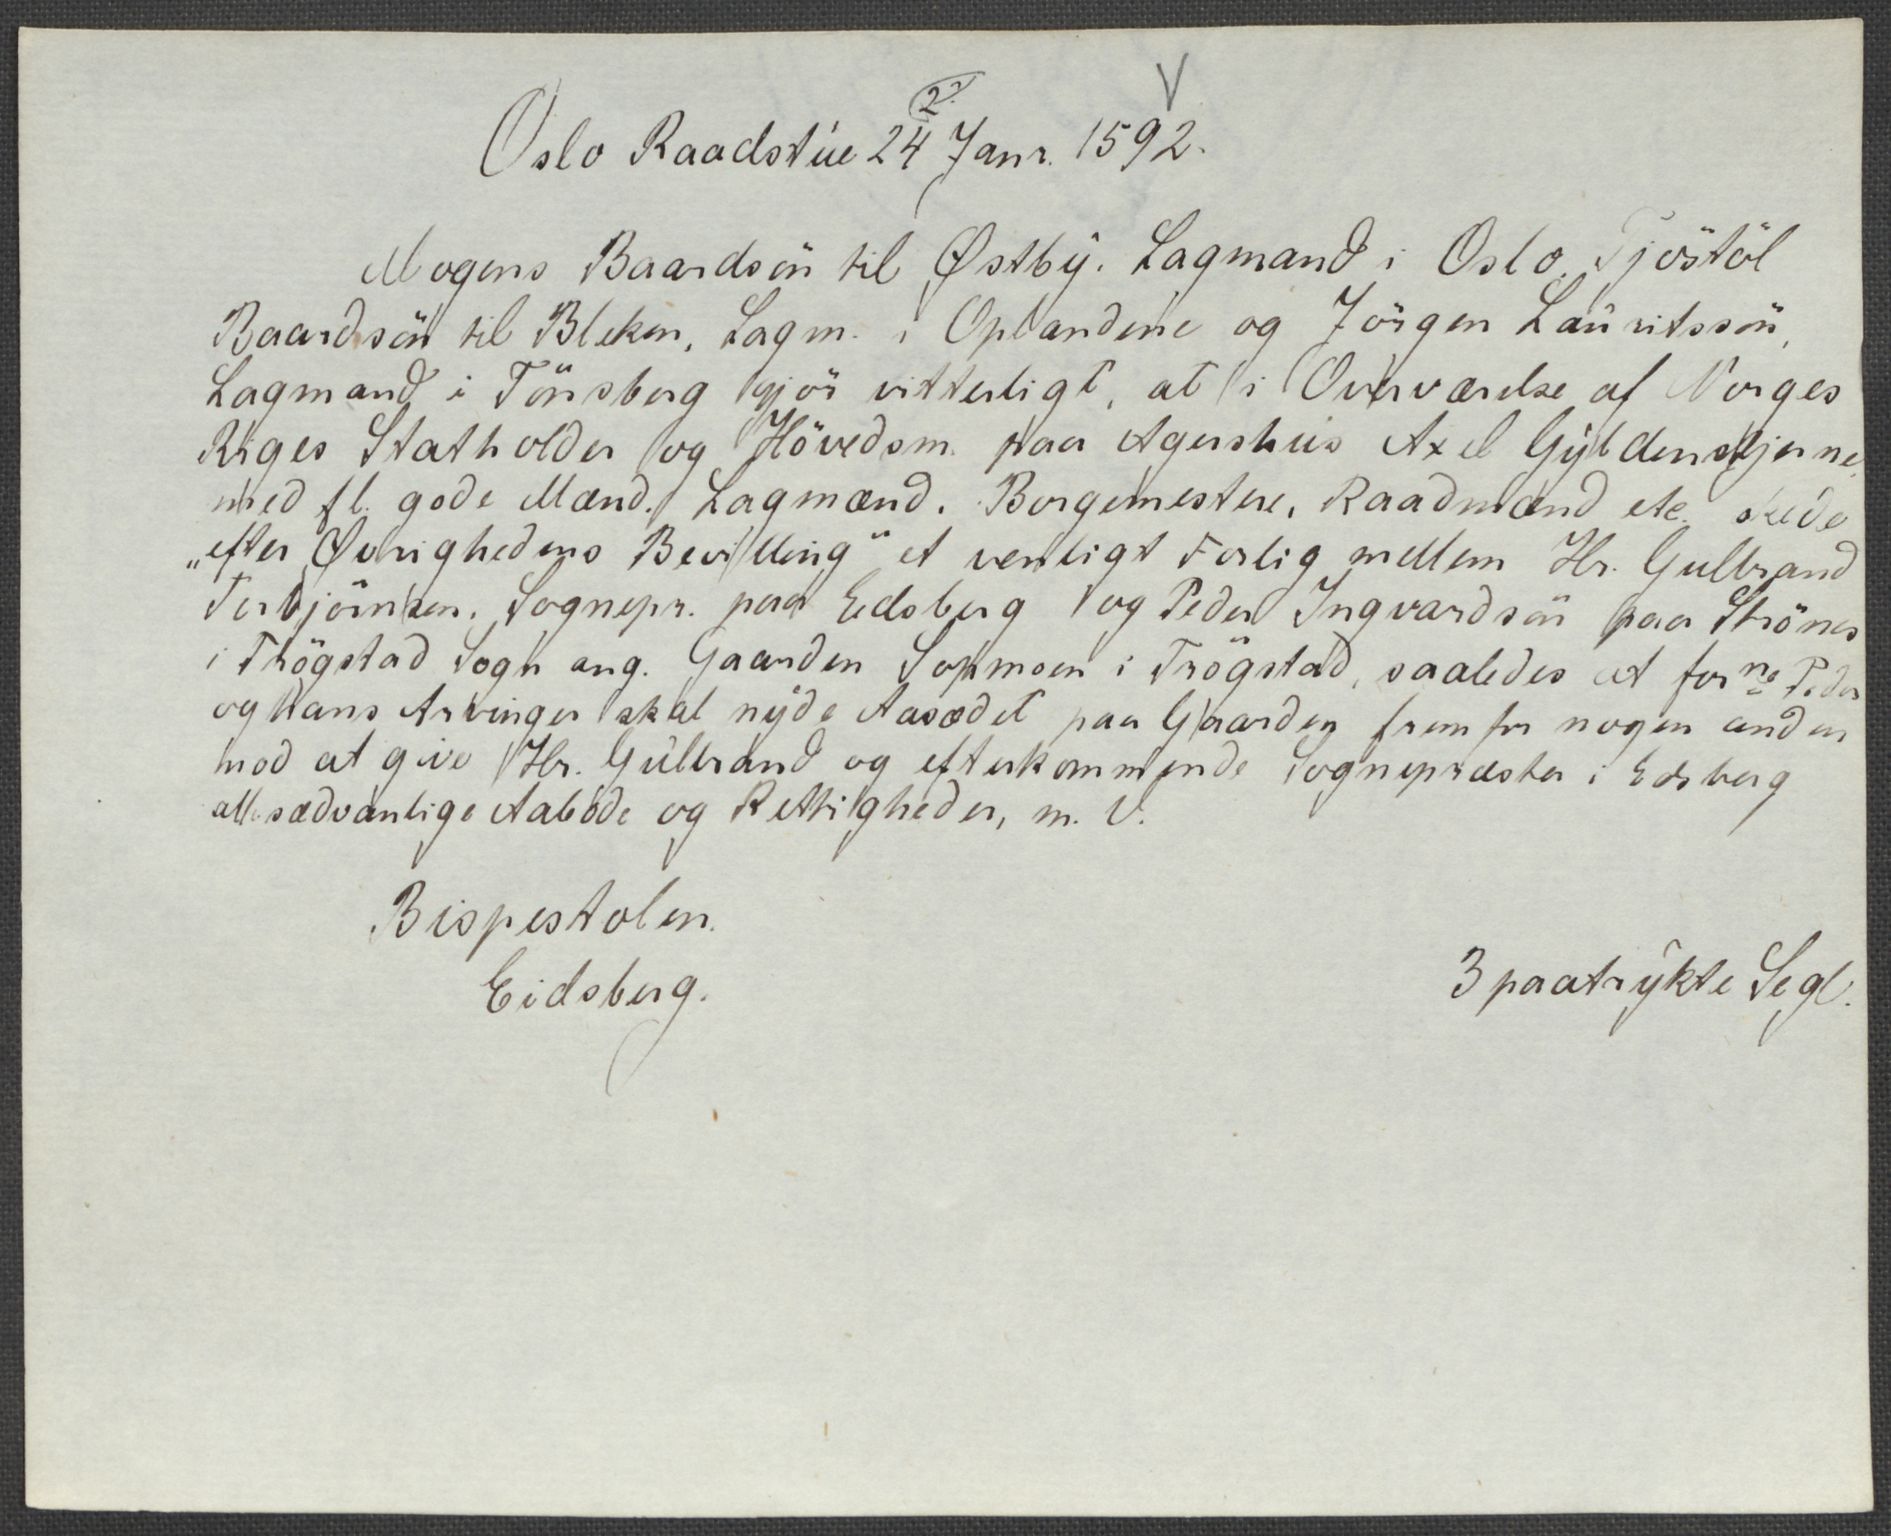 Oslo Raadstúe 24 (2?) Janr. 1592. V
Mogens Baardsön til Østbÿ. Lagmand i Oslo, Tjöstöl
Baardsön til Bleken, Lagm. i Oplandene og Jörgen Laúritssön,
Lagmand i Tönsberg gjör vitterligt, at i Overværelse af Norges
Riges Statholder og Hövedsm. paa Agershús Axel Gÿldenstjerne
med fl. gode Mænd. Lagmænd. Borgemestere, Raadmænd etc. skede
„efter Øvrighedens Bevilling“ et venligt Forlig mellem Hr. Gulbrand
Torbjörnsen. Sognepr. paa Edsberg og Peder Ingvardsön paa Strönes
i Trögstad Sogn ang. Gaarden Sopmoen i Trögstad, saaledes at forne Peder
og hans Arvinger skal nÿde Aasædet paa Gaarden fremfor nogen anden
mod at give Hr. Gúlbrand og efterkommende Sognepræster i Edsberg
alle sædvanlige Aabode og Rettigheder, m. V.
Bispestolen.
Eidsberg.
3 paatrÿkte Segl.